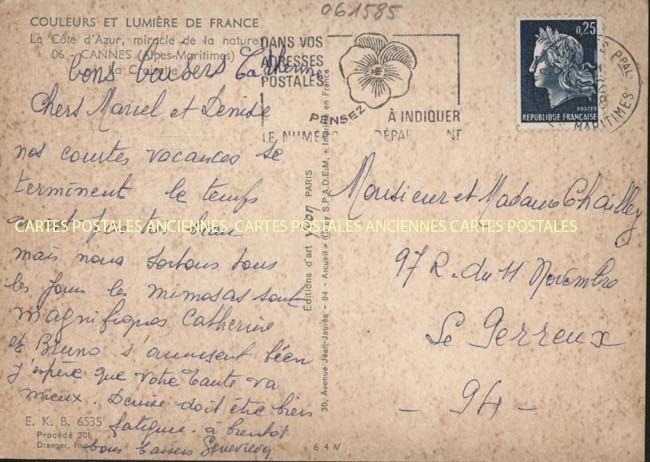 COULEURS ET LUMIÈRE DE FRANCE
La Côte d'Azur, miracle de la nature
06 - CANNES (Alpes-Maritimes)
La
bons baisers Catherine
Chers Marcel et Denise
nos courtes vacances se
terminent le temps
beau
mais nous sortons tous
les jours les mimosas sont
magnifiques Catherine
et Bruno s'amusent bien
j'espère que votre tante va
mieux. Denise doit être bien
fatiguée. à bientôt
bons baisers Geneviève
E. K. B. 6535
Procédé 301
Draeger, Imp.
64V
Éditions d'art Yvon PARIS
30, Avenue Jean-Jaurès - 94 - Arcueil - © by S.P.A.D.E.M. - Imprimé en France
061585
DANS VOS
ADRESSES
POSTALES
PENSEZ
À INDIQUER
LE NUMÉRO DÉPARTEMENT
0,25
POSTES
RÉPUBLIQUE FRANÇAISE
PPAL
MARITIMES
Monsieur et Madame Chailley
97 R. du 11 Novembre
Le Perreux
- 94 -
CARTES POSTALES ANCIENNES CARTES POSTALES ANCIENNES CARTES POSTALES